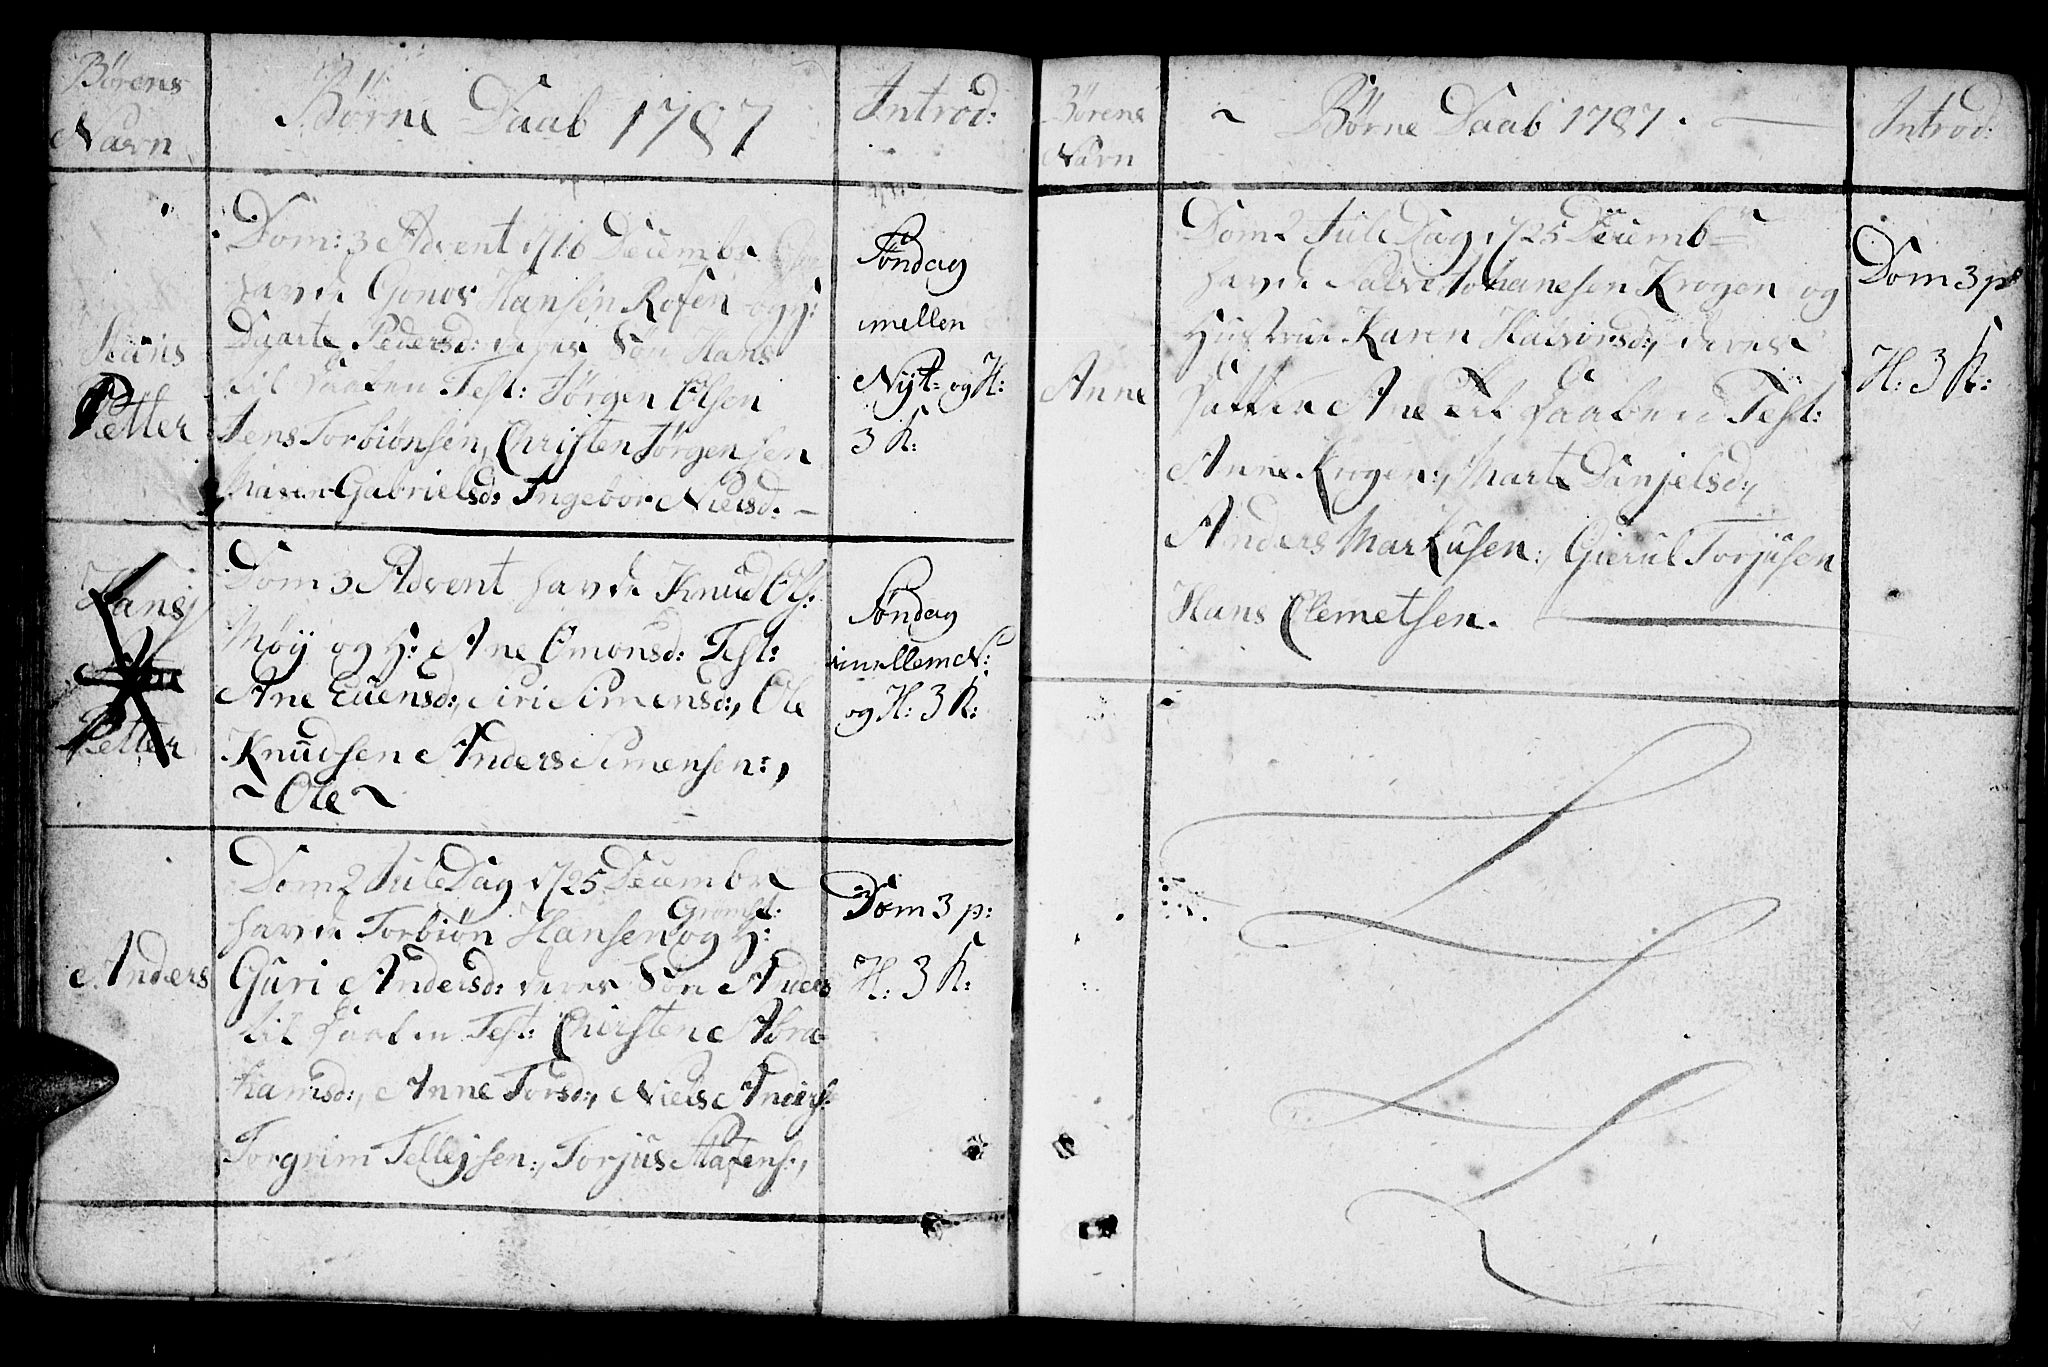 Børens
Navn
Børne Daab 1787
Introd:
Hans
Petter
Dom: 3 Advent 16 Decembr
havde Gonor Hansen Rosen og H:
Pedersd: deres Søn Hans
til Daaben Test: Jørgen Olsen
Jens Torbiønsen, Christen Jørgensen
Maren Gabrielsd: Ingebor Nielsd. –
Søndag
imellen
Nyt= og H:
3 K:
Hans
Petter
Dom 3 Advent havde Knud Ols:
Møy og H: Ane Omonsd: Test:
Ane Euensd:, Siri Simensd:, Ole
Knudsen Anders Simensen:,
~ Ole ~
Søndag
imellem N:
og H: 3 K:
Anders
Dom 2 Jule Dag 25 Decembr
Gromst:
havde Torbiøn Hansen og H:
Guri Andersd: deres Søn Anders
til Daaben Test: Christen Abra=
hamsd:, Anne Torsd:, Niels Anders:
Torgrim Tellejsen:, Torjus Stafens:,
Dom 3 p:
H: 3 K:
Børens
Navn
~ Børne Daab 1787. —
Introd:
Anne
Dom 2 Jule Dag 25 Decembr
havde Johanesen Krogen og
Hustrue Karen Halvorsd:, deres
Datter Ane til Daaben Test:
Anne Krogen:, Marte Dinjelsd:,
Anders Markusen:, Gierul Torjusen
Hans Clemetsen. —
Dom 3 p
H: 3 K: